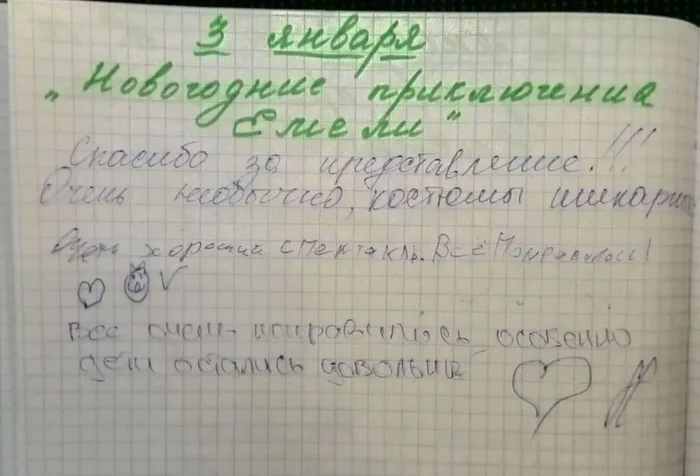 3 января
„Новогодние приключения
Емели"
Спасибо за представление!!!
Очень необычно, костюмы шикарн
Очень хороший спектакль. Всё понравилось!
Все очень понравилось, особенно
дети остались довольны